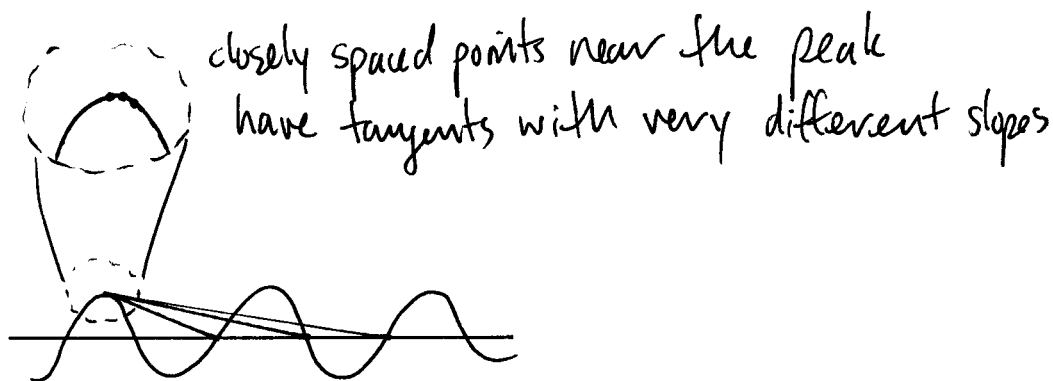 closely spaced points near the peak
have tangents with very different slopes